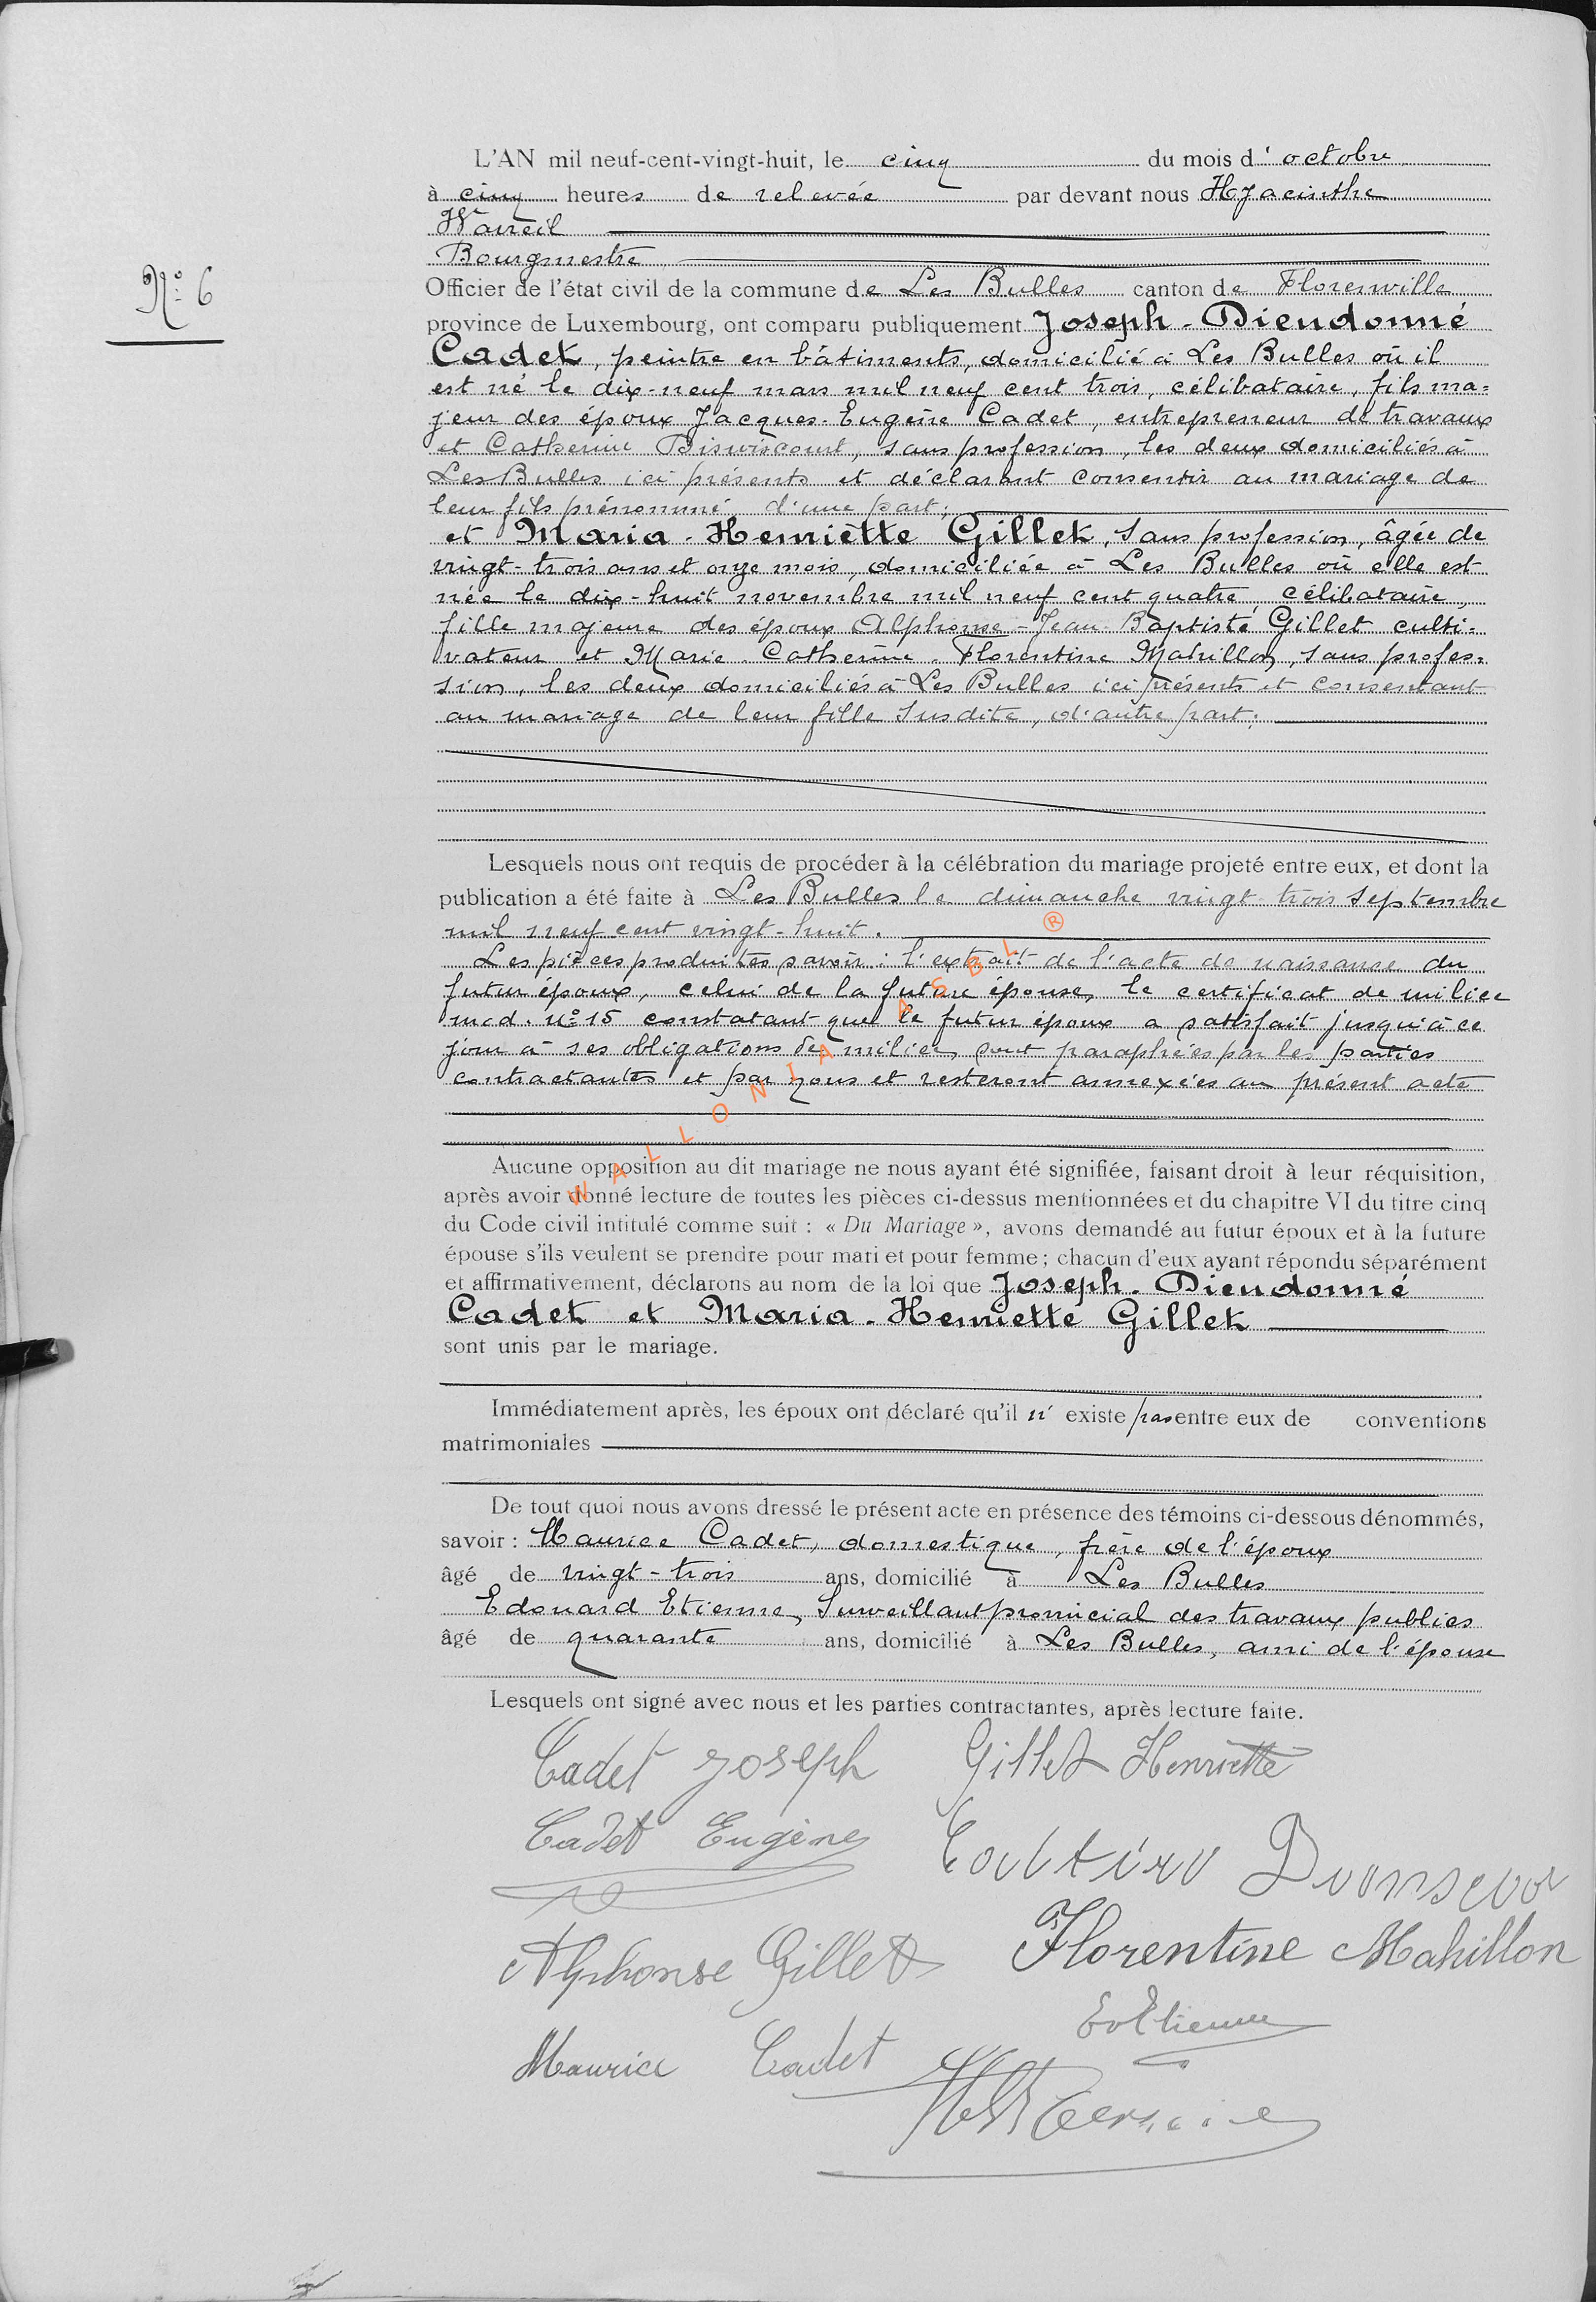 L'AN mil neuf-cent-vingt-huit, le cinq du mois d'octobre
à cinq heures de relevée par devant nous Hyacinthe
Bourgmestre
N° 6
Officier de l'état civil de la commune de Les Bulles canton de Florenville
province de Luxembourg, ont comparu publiquement Joseph-Dieudonné
Cadet, peintre en bâtiments, domicilié à Les Bulles où il
est né le dix-neuf mars mil neuf cent trois, célibataire, fils ma=
jeur des époux Jacques-Eugène Cadet, entrepreneur de travaux
et Catherine, sans profession, les deux domiciliés à
Les Bulles ici présents et déclarant consentir au mariage de
leur fils prénommé d'une part;
et Maria-Henriètte Gillet, sans profession, âgée de
vingt-trois ans et onze mois, domiciliée à Les Bulles où elle est
née le dix-huit novembre mil neuf cent quatre, célibataire,
fille majeure des époux Alphonse-Jean-Baptiste Gillet culti=
vateur et Marie-Catherine-Florentine Mahillon, sans profes=
sion, les deux domiciliés à Les Bulles ici présents et consentant
au mariage de leur fille susdite, d'autre part;
Lesquels nous ont requis de procéder à la célébration du mariage projeté entre eux, et dont la
publication a été faite à Les Bulles le dimanche vingt-trois septembre
mil neuf cent vingt-huit.
Les pièces produites savoir: l'extrait de l'acte de naissance du
futur époux, celui de la future épouse, le certificat de milice
mod. n° 15 constatant que le futur époux a satisfait jusqu'à ce
jour à ses obligations de milice, sont paraphées par les parties
contractantes et par nous et resteront annexées au présent acte
WALLONIA ASBL ®
Aucune opposition au dit mariage ne nous ayant été signifiée, faisant droit à leur réquisition,
après avoir donné lecture de toutes les pièces ci-dessus mentionnées et du chapitre VI du titre cinq
du Code civil intitulé comme suit : « Du Mariage », avons demandé au futur époux et à la future
épouse s'ils veulent se prendre pour mari et pour femme ; chacun d'eux ayant répondu séparément
et affirmativement, déclarons au nom de la loi que Joseph-Dieudonné
Cadet et Maria-Henriette Gillet
sont unis par le mariage.
Immédiatement après, les époux ont déclaré qu'il n'existe pas entre eux de conventions
matrimoniales
De tout quoi nous avons dressé le présent acte en présence des témoins ci-dessous dénommés,
savoir : Maurice Cadet, domestique, frère de l'époux
âgé de vingt-trois ans, domicilié à Les Bulles
Edouard Etienne, Surveillant provincial des travaux publics
âgé de quarante ans, domicilié à Les Bulles, ami de l'épouse
Lesquels ont signé avec nous et les parties contractantes, après lecture faite.
Cadet Joseph Gillet Henriette
Cadet Eugène
Alphonse Gillet Florentine Mahillon
Ed Etienne
Maurice Cadet